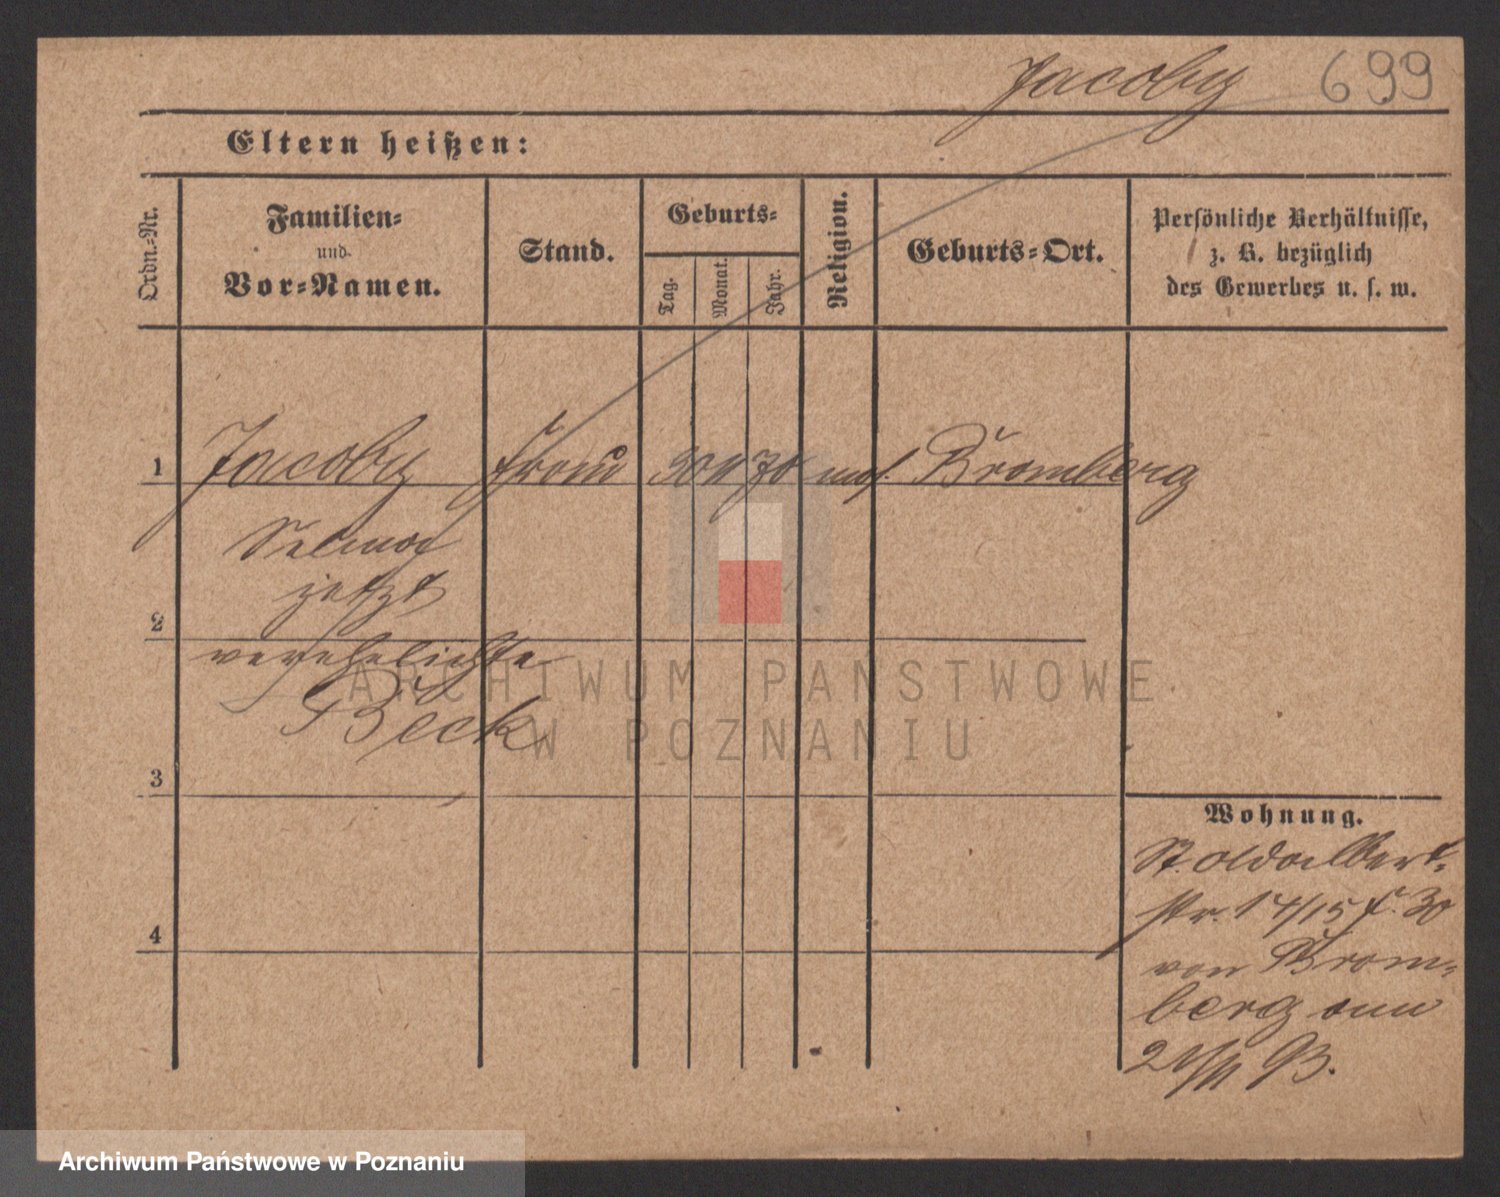 Jacoby 699
Eltern heißen:
Ordn.-Nr.
Familien-
und
Vor-Namen.
Stand.
Geburts-
Tag.
Monat.
Jahr.
Religion.
Geburts-Ort.
Persönliche Verhältnisse,
z. B. bezüglich
des Gewerbes u. s. w.
1 Jacoby Frau 70 mos. Bromberg
Selma
jetzt
2
verehelichte
Beck
3
4
Wohnung.
St. Adalbert-
str. 14/15
von Brom-
berg am
93.
ARCHIWUM PAŃSTWOWE
W POZNANIU
Archiwum Państwowe w Poznaniu